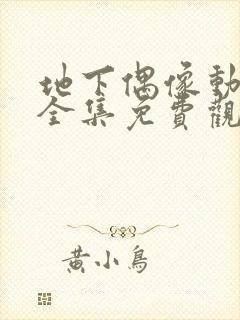 地下偶像動
全集免費觀
黃小鳥